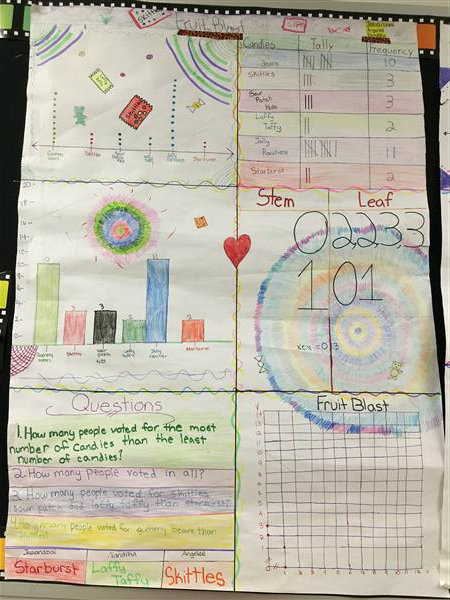 Fruit Blast
Candies Tally Frequency
Bears 10
Skittles 3
Sour Patch Kids 3
Laffy Taffy 2
Jolly Ranchers 11
Starburst 2
Skittles
Gummy bears
Skittles
Starburst
20
18
16
14
12
10
8
6
4
2
0
10 3 3 2 2
Gummy bears
Skittles
Sour patch kids
Laffy taffy
Jolly rancher
Starburst
Stem Leaf
0 2,2,3,3
1 0 1
Questions
1. How many people voted for the most
number of candies than the least
number of candies?
2. How many people voted in all?
3. How many people voted for skittles
sour patch and laffy taffy than starburst?
4. How many people voted for gummy bears than
Angelee
Starburst
Laffy Taffy
Skittles
Fruit Blast